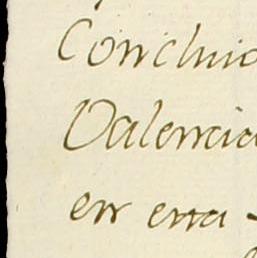 Concluid
Valencia
en esta -